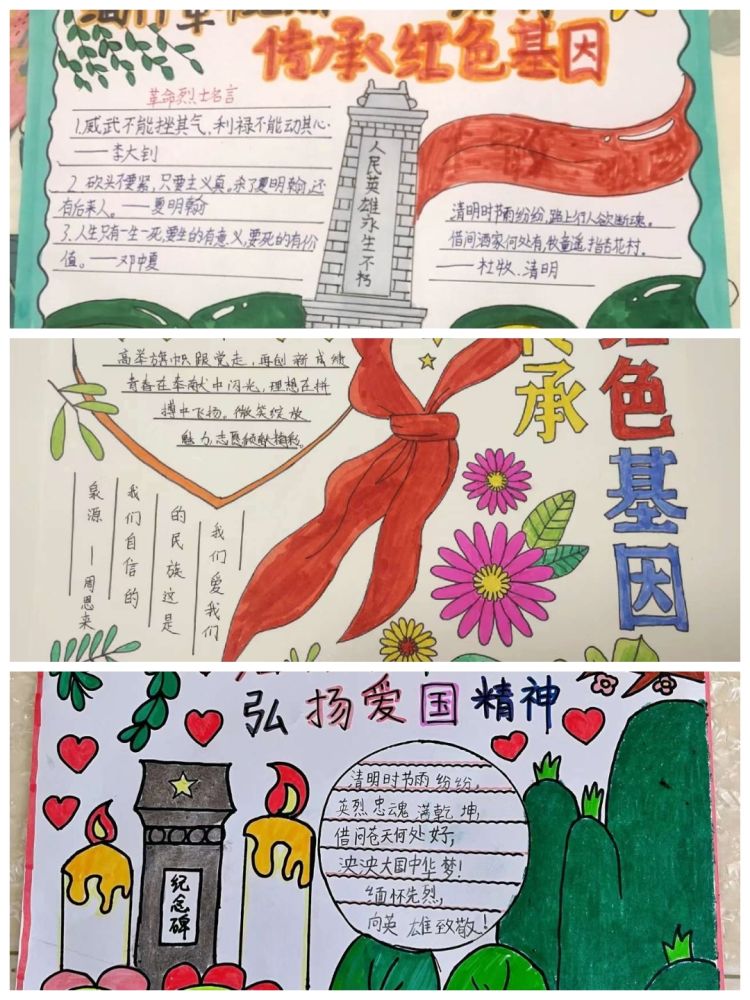 传承红色基因
革命烈士名言
1.威武不能挫其气,利禄不能动其心.
——李大钊
2.砍头不要紧,只要主义真。杀了夏明翰,还
有后来人。——夏明翰
3.人生只有一生一死,要生的有意义,要死的有价
值。——邓中夏
人民英雄永生不朽
清明时节雨纷纷,路上行人欲断魂。
借问酒家何处有,牧童遥指杏花村。
——杜牧.清明
高举旗帜跟党走,再创新成绩
青春在奉献中闪光,理想在拼
搏中飞扬。微笑绽放
魅力,志愿精彩。
承
色基因
我们爱我们
的民族这是
我们自信的
泉源—周恩来
弘扬爱国精神
纪念碑
清明时节雨纷纷,
英烈忠魂满乾坤,
借问苍天何处好,
泱泱大国中华梦!
缅怀先烈,
向英雄致敬!